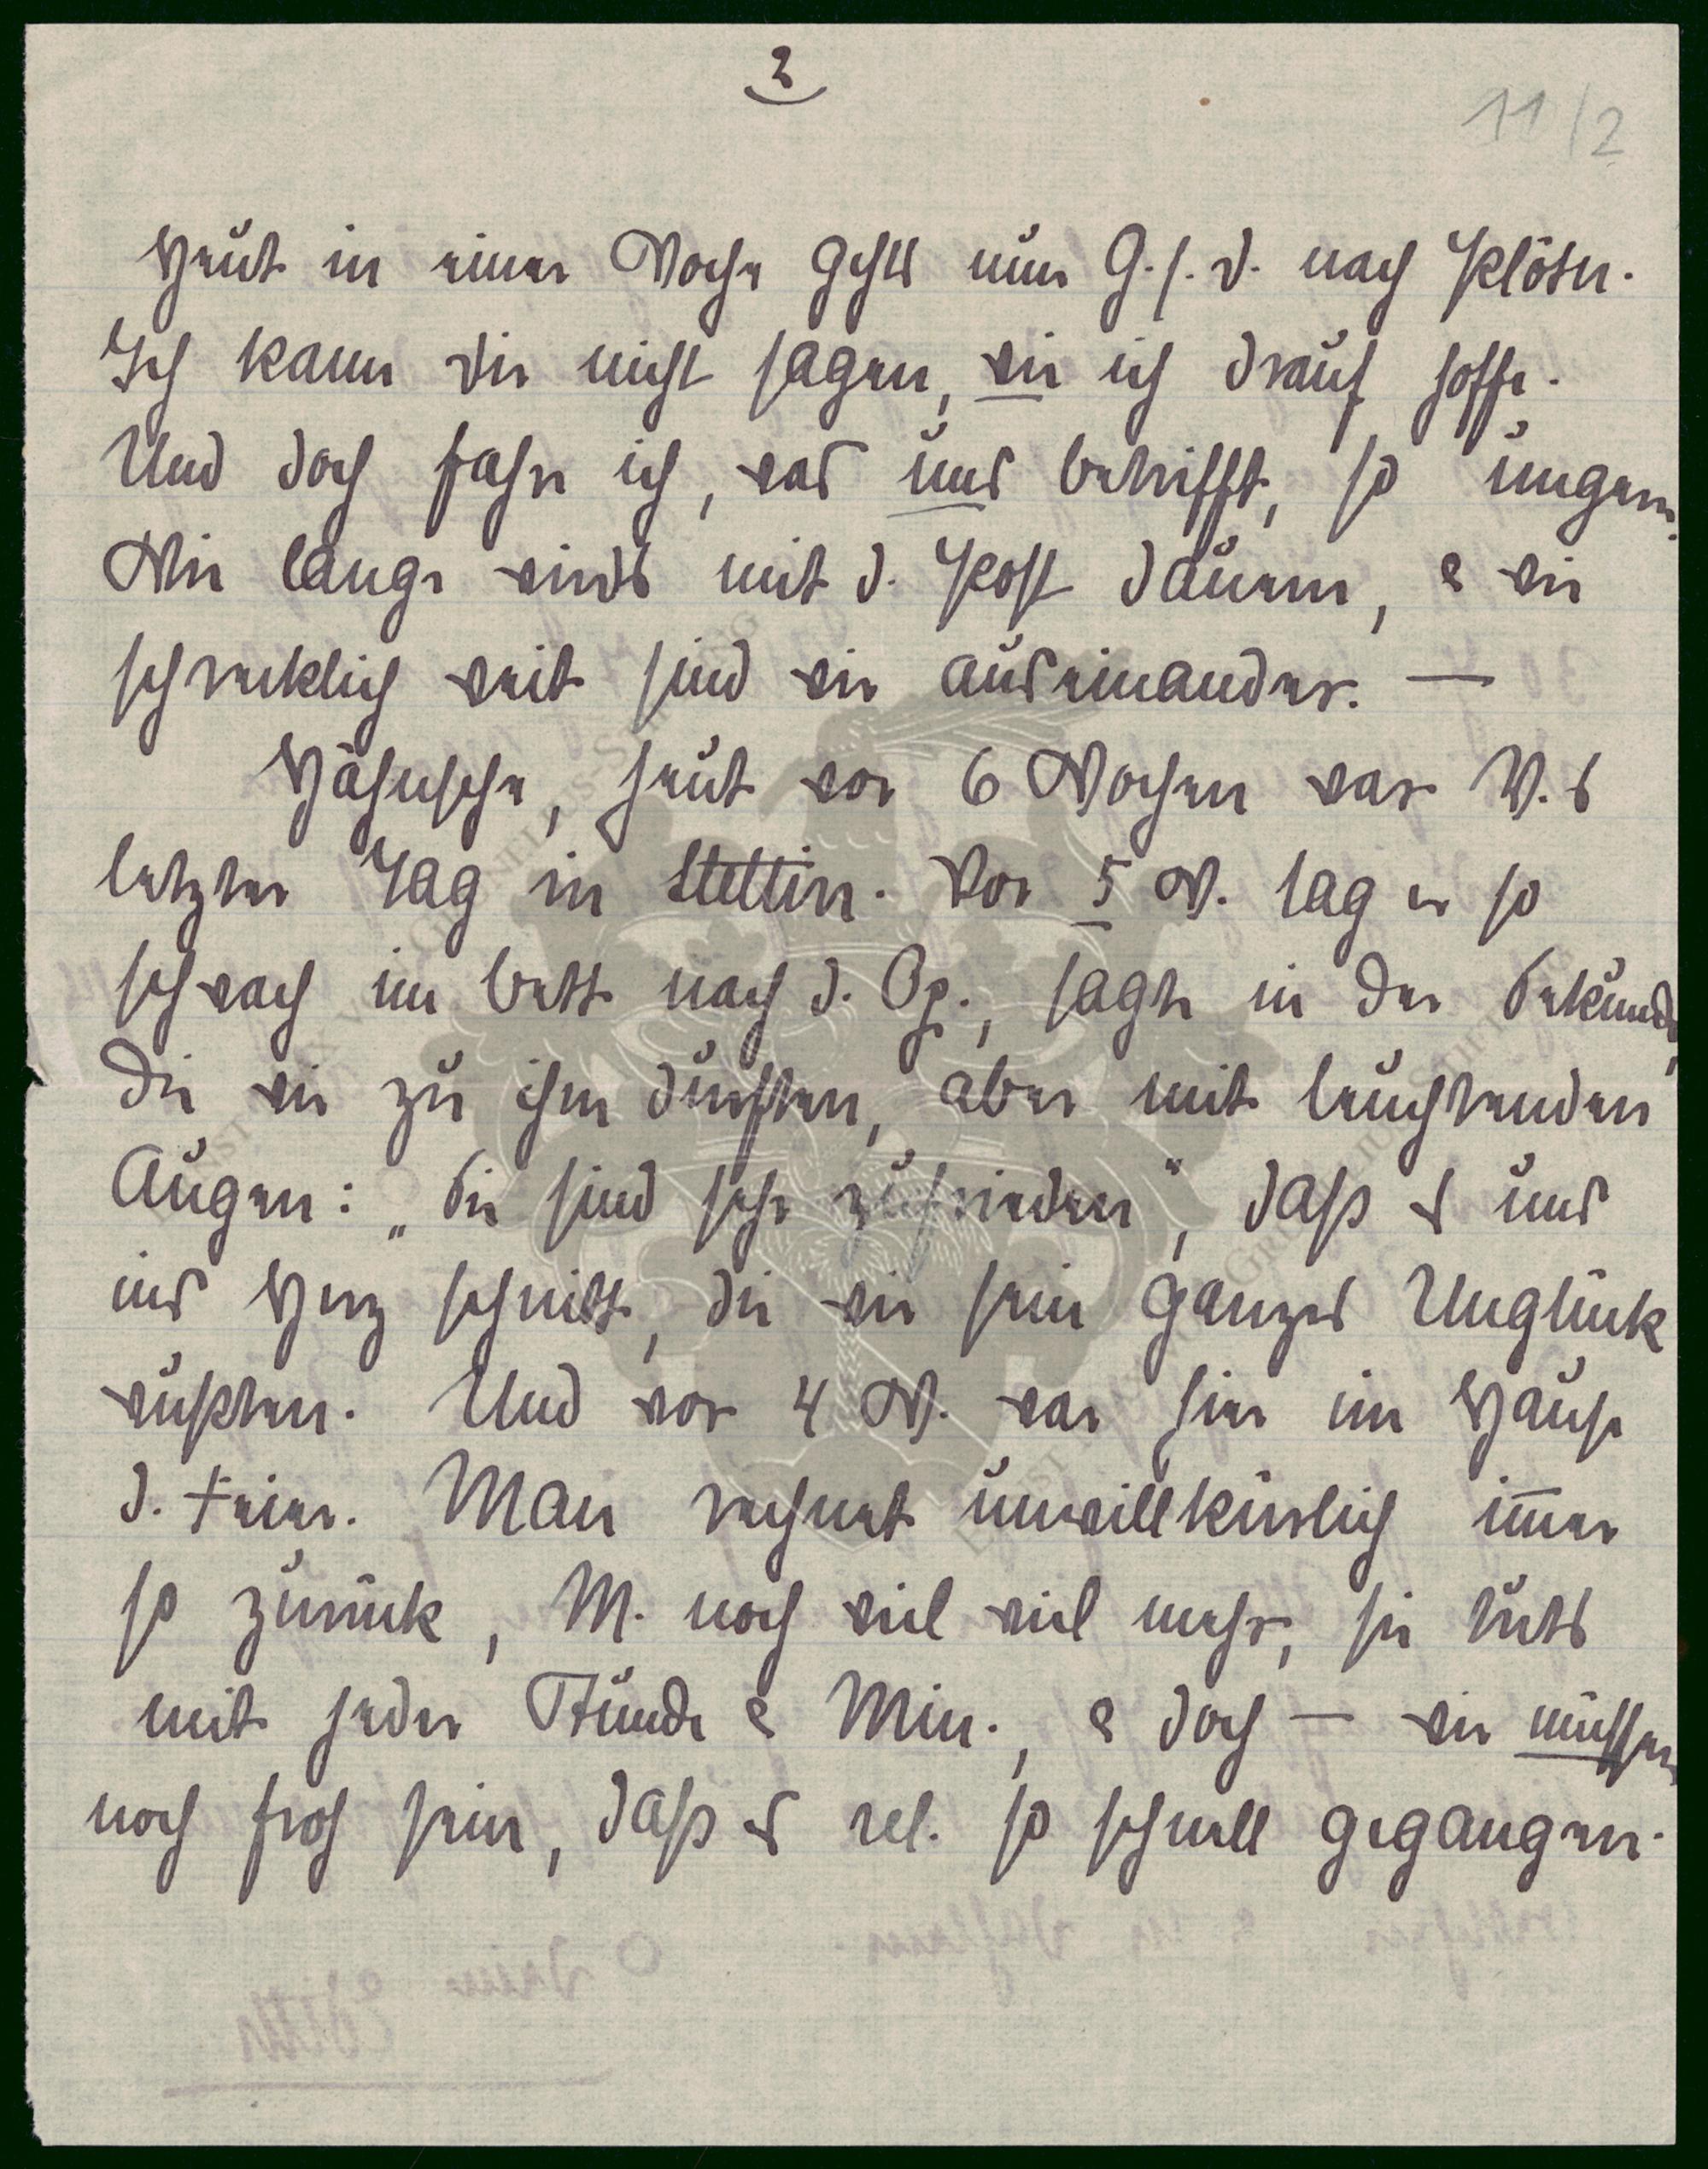 2
11/2
Heut in einer Woche gehts nun G. s. D. nach Klöster.
Ich kann dir nicht sagen, wie ich drauf hoffe.
Und doch fahr ich, was uns betrifft, so ungern.
Wie lange wirds mit d. Post dauern, & wie
schrecklich weit sind wir auseinander. —
Hähnsche, heut vor 6 Wochen war V.s
letzter Tag in Stettin. Vor 5 W. lag er so
schwach im Bett nach d. Op., sagte in der Sekunde,
die wir zu ihm durften, aber mit leuchtenden
Augen: „Sie sind sehr zufrieden“, dass es uns
ins Herz schnitt, die wir sein ganzes Unglück
wußten. Und vor 4 W. war hier im Hause
d. Feier. Man rechnet unwillkürlich immer
so zurück, M. noch viel viel mehr, sie tuts
mit jeder Stunde & Min., & doch — wir müssen
noch froh sein, dass es rel. so schnell gegangen.